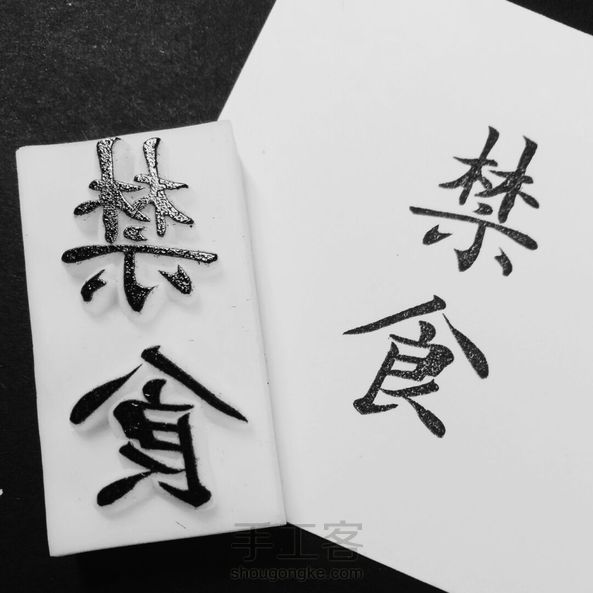 禁食
禁食
手工客
shougongke.com